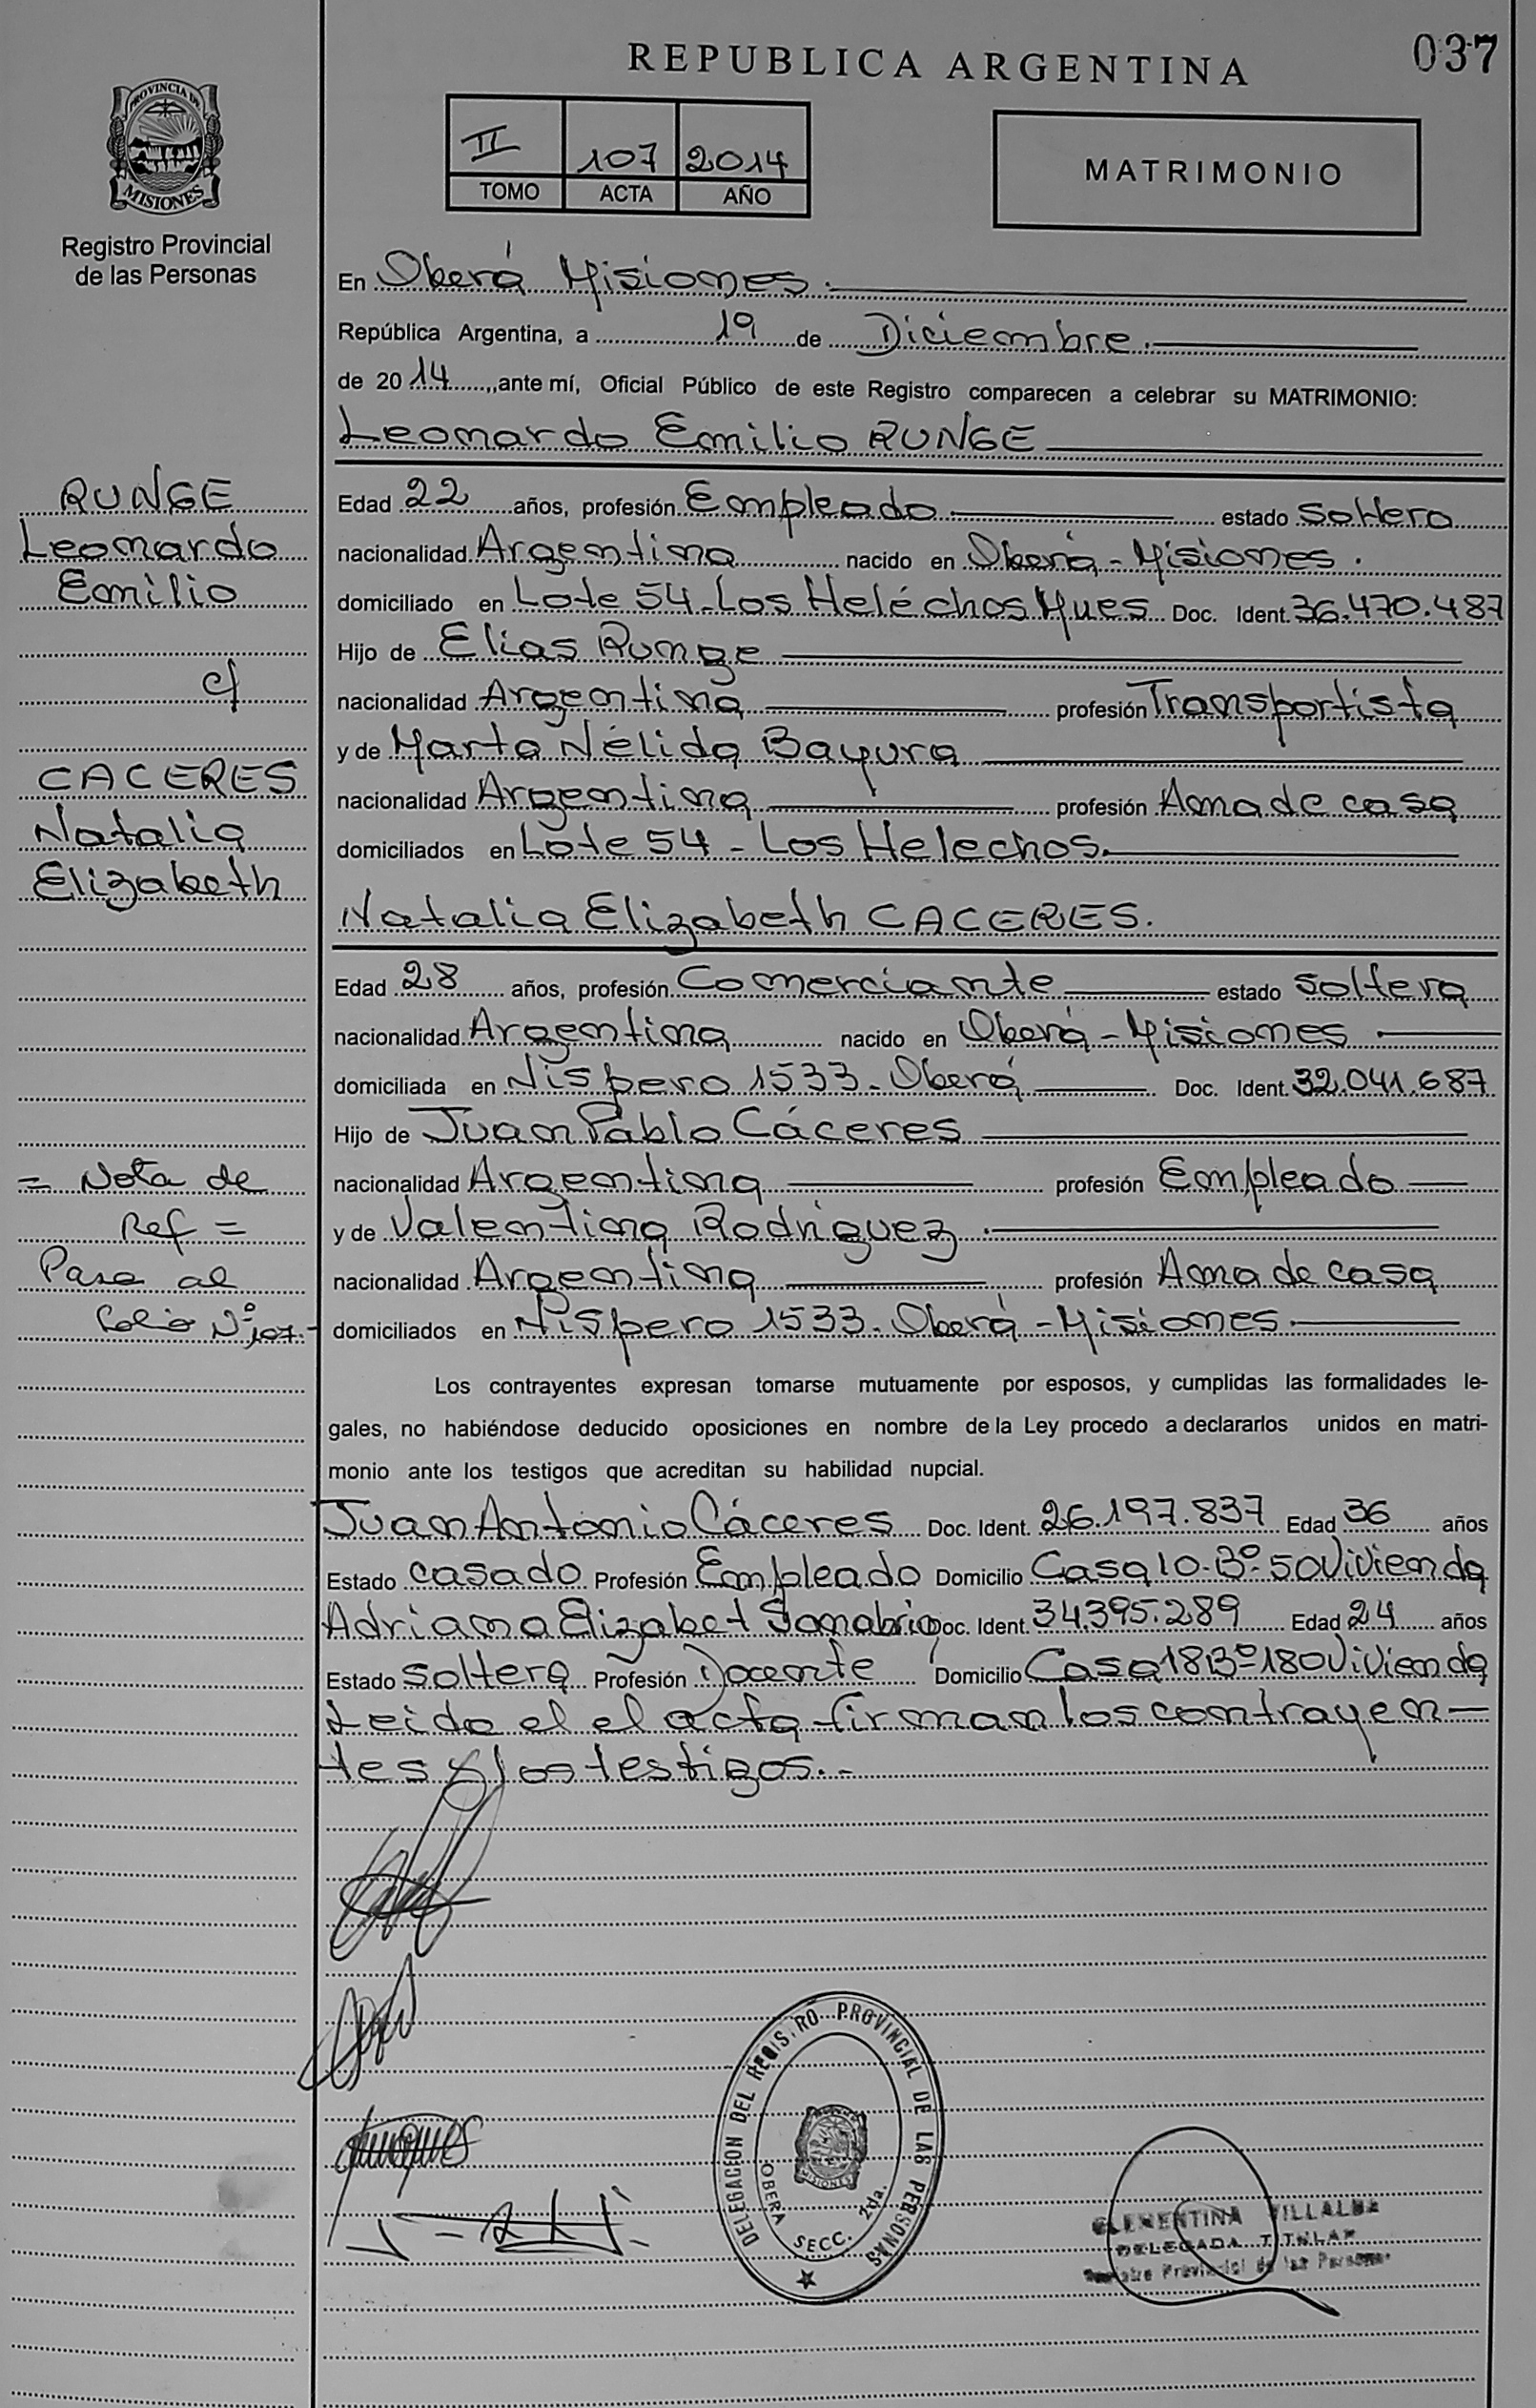 REPUBLICA ARGENTINA
037
PROVINCIA DE
MISIONES
Registro Provincial
de las Personas
II 107 2014
TOMO ACTA AÑO
MATRIMONIO
En Oberá Misiones.
República Argentina, a 19 de Diciembre.
de 2014, ante mí, Oficial Público de este Registro comparecen a celebrar su MATRIMONIO:
Leonardo Emilio RUNGE
RUNGE
Leonardo
Emilio
c/
CACERES
Natalia
Elizabeth
Edad 22 años, profesión Empleado estado Soltero
nacionalidad Argentina nacido en Oberá - Misiones.
domiciliado en Lote 54 - Los Heléchos Mnes Doc. Ident. 36.470.487
Hijo de Elias Runge
nacionalidad Argentina profesión Transportista
y de Marta Nélida Bayura
nacionalidad Argentina profesión Ama de casa
domiciliados en Lote 54 - Los Helechos.
Natalia Elizabeth CACERES.
Edad 28 años, profesión Comerciante estado Soltera
nacionalidad Argentina nacido en Oberá - Misiones
domiciliada en Nispero 1533 - Oberá Doc. Ident. 32.041.687
Hijo de Juan Pablo Cáceres
nacionalidad Argentina profesión Empleado
y de Valentina Rodriguez.
nacionalidad Argentina profesión Ama de casa
domiciliados en Nispero 1533 - Oberá - Misiones.
= Nota de
Ref =
Pasa al
Folio Nº 107.-
Los contrayentes expresan tomarse mutuamente por esposos, y cumplidas las formalidades le-
gales, no habiéndose deducido oposiciones en nombre de la Ley procedo a declararlos unidos en matri-
monio ante los testigos que acreditan su habilidad nupcial.
Juan Antonio Cáceres Doc. Ident. 26.197.837 Edad 36 años
Estado casado Profesión Empleado Domicilio Casa 10 - Bº 50 Vivienda
Adriana Elizabet Sanabria Doc. Ident. 34.395.289 Edad 24 años
Estado Soltera Profesión Docente Domicilio Casa 18 Bº 180 Vivienda
Leido el el acta firman los contrayen-
tes y los testigos.-
DELEGACION DEL REGISTRO PROVINCIAL DE LAS PERSONAS
MISIONES
OBERA SECC. 2da.
CLEMENTINA VILLALBA
DELEGADA TITULAR
Registro Provincial de las Personas